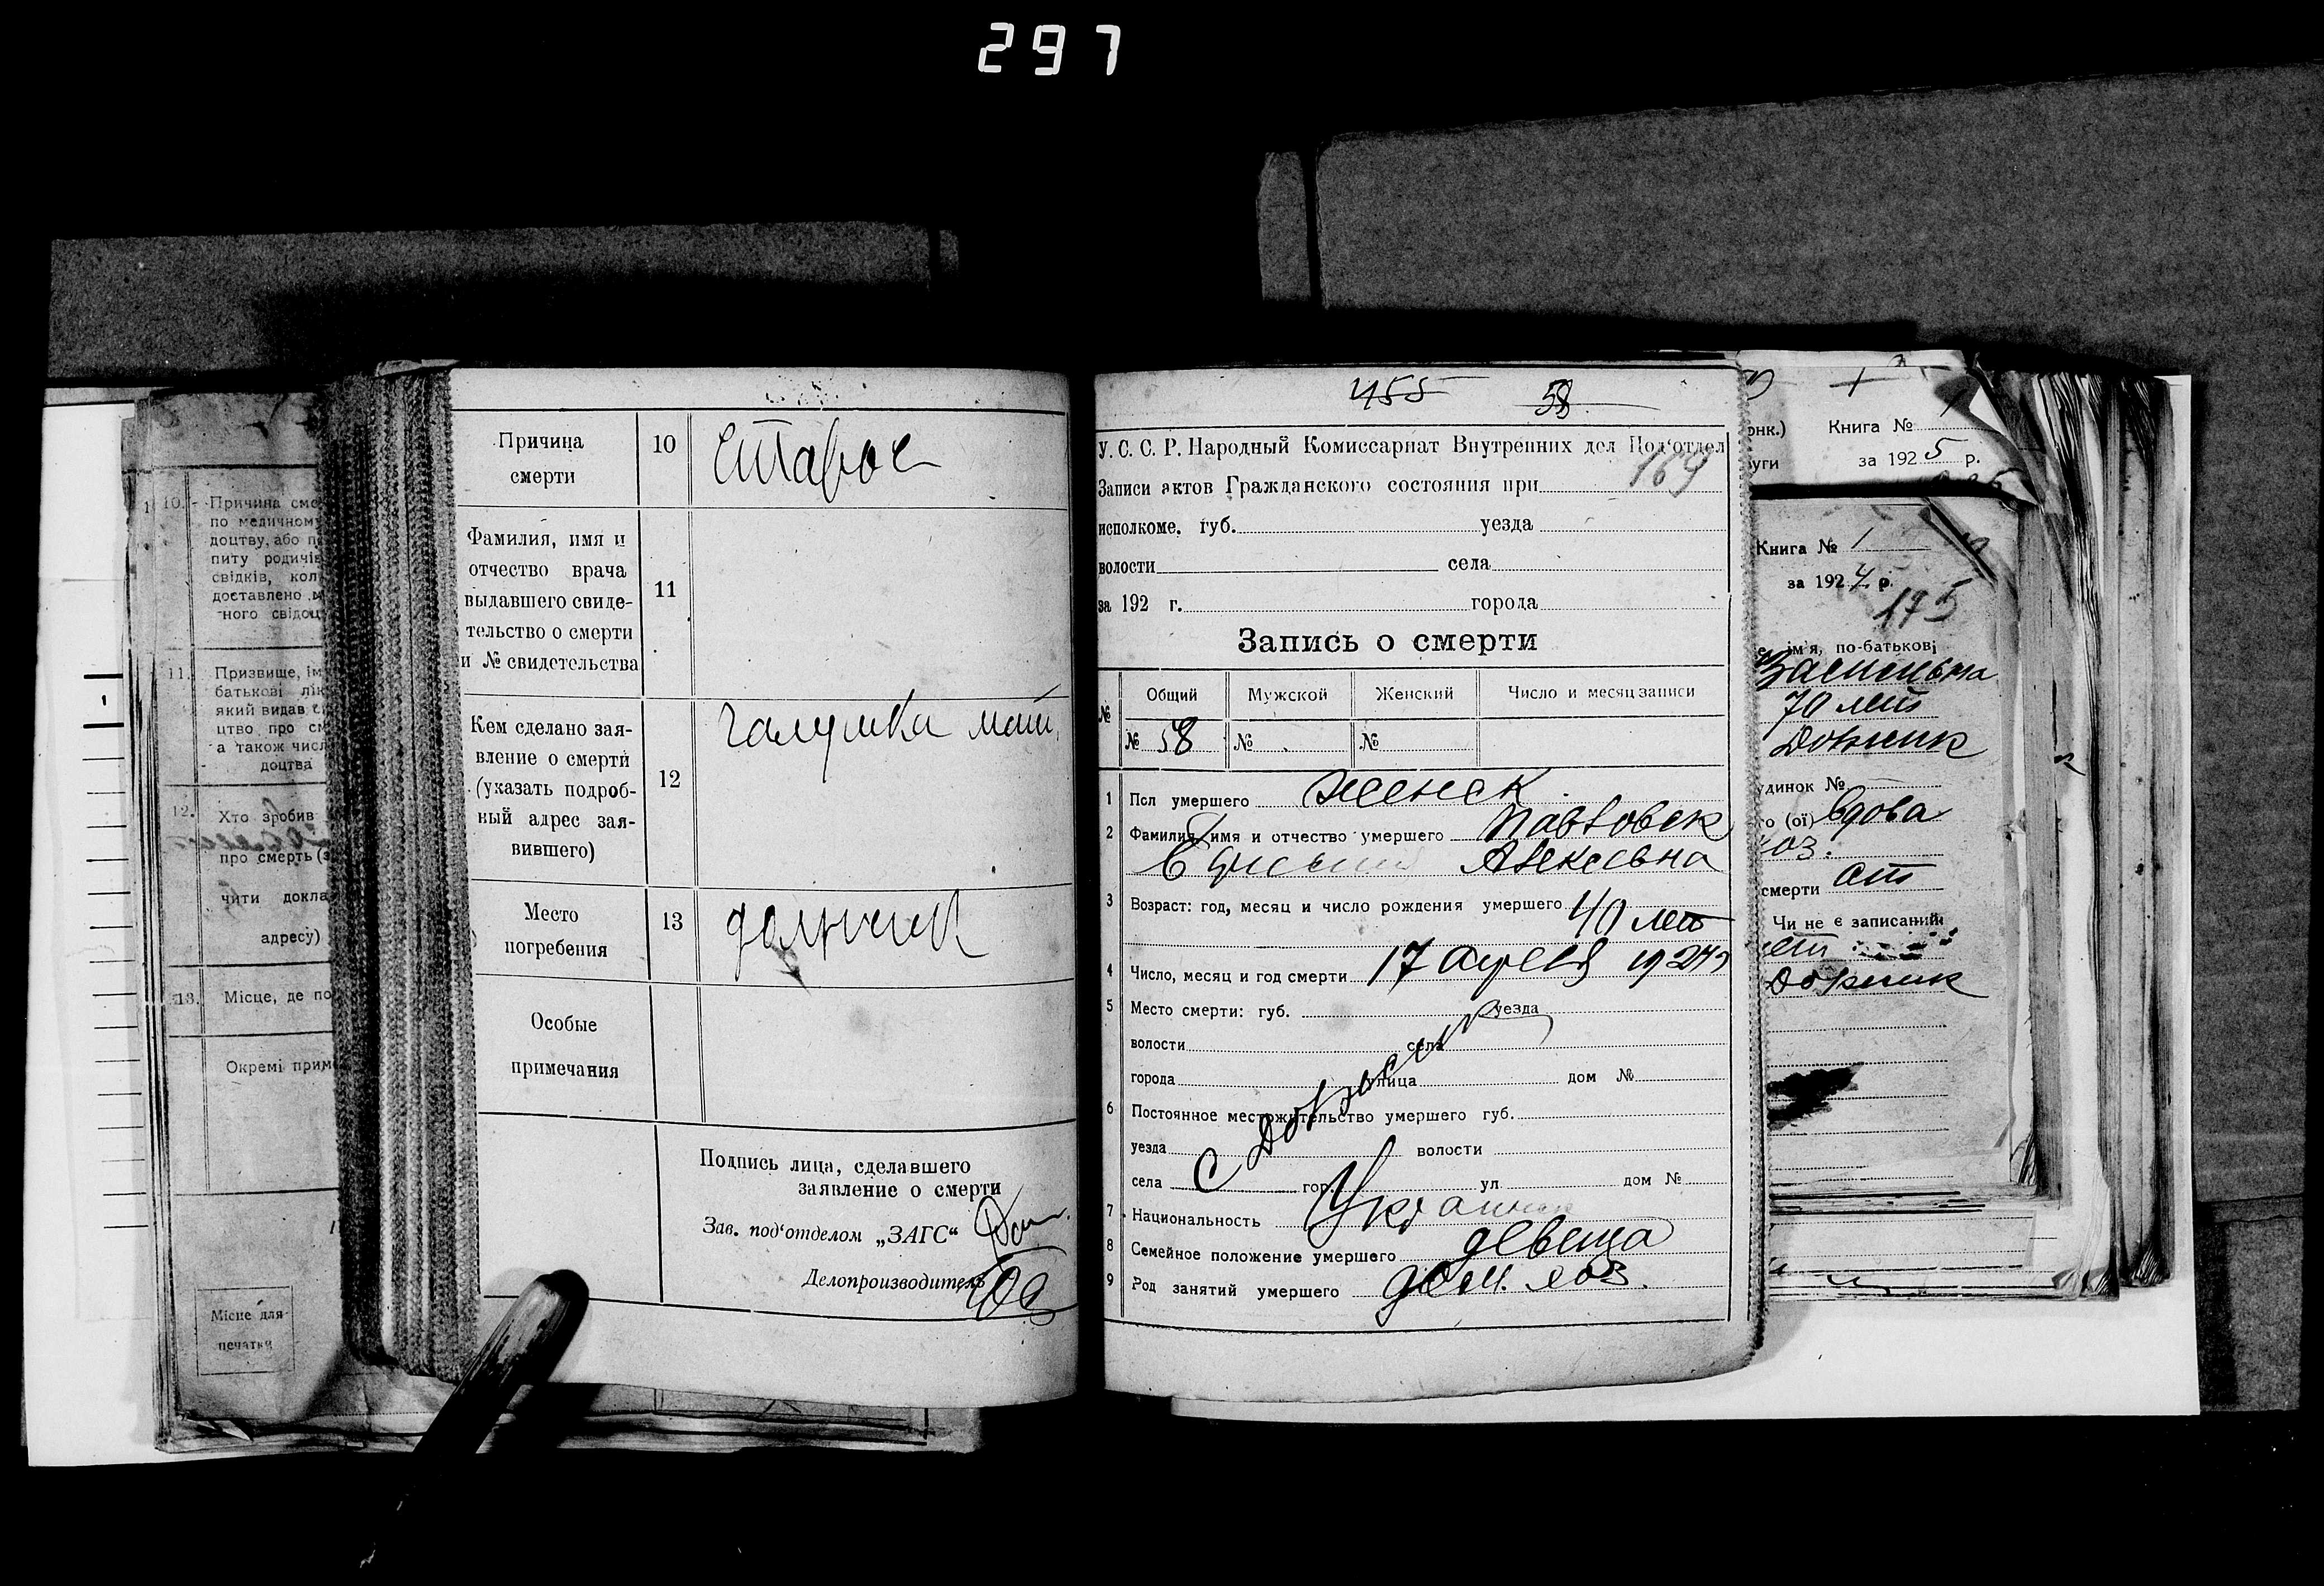 297
Причина смерти 10 Старос
Фамилия, имя и отчество врача выдавшего свидетельство о смерти и № свидетельства 11
Кем сделано заявление о смерти (указать подробный адрес заявившего) 12
Место погребения 13
Особые примечания
Подпись лица, сделавшего
заявление о смерти
Зав. под‘отделом „ЗАГС“
Делопроизводитель
455 58
У. С. С. Р. Народный Комиссариат Внутренних дел Под‘отдел
169
Записи актов Гражданского состояния при
исполкоме, губ. уезда
волости села
за 192 г. города
Запись о смерти
№ Общий Мужской Женский Число и месяц записи
№ 58 № №
1 Пол умершего женск
2 Фамилия, имя и отчество умершего Павловск
Алексевна
3 Возраст: год, месяц и число рождения умершего 40 лет
4 Число, месяц и год смерти 17 апреля 1924
5 Место смерти: губ. уезда
волости села
города улица дом №
6 Постоянное местожительство умершего губ.
уезда волости
села С гор. ул дом №
7 Национальность Украинк
8 Семейное положение умершего девеца
9 Род занятий умершего дом. хоз.
10. Причина сме
по медичному
доцтву, або п
питу родичів
свідків, кол
доставлено м
ного свідоц
11. Призвище, ім
батькові лік
який видав с
цтво про см
а також числ
доцтва
12. Хто зробив
про смерть (з
чити докла
адресу)
13. Місце, де по
Окремі прим
Місце для
печатки
Книга № 1
за 1925 р.
Книга № 1
за 1924 р.
175
ім'я, по-батькові
70 лет
динок №
го (ої) вдова
хоз.
смерти
Чи не є записаний